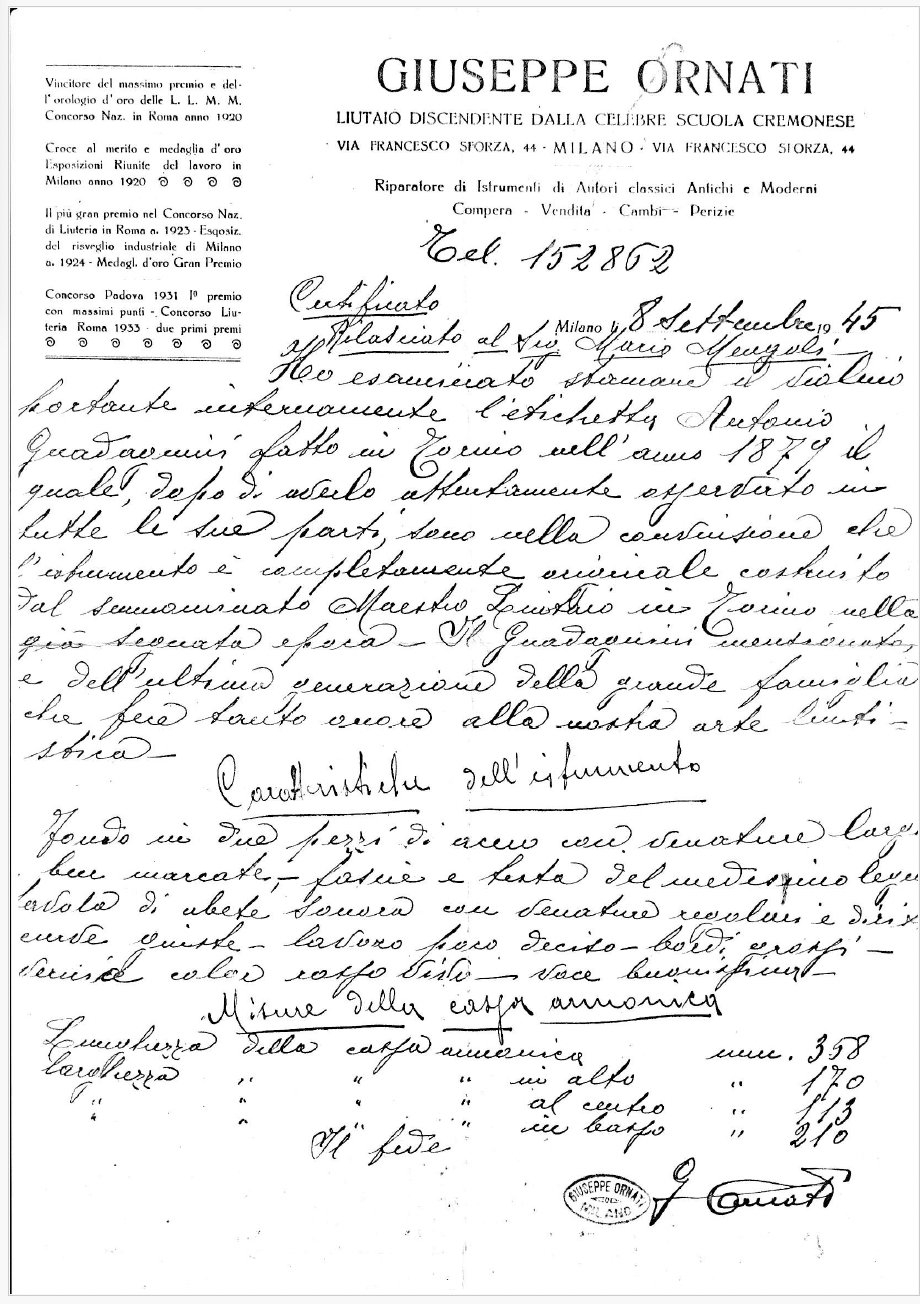 Vincitore del massimo premio e del-
l'orologio d'oro delle L. L. M. M.
Concorso Naz. in Roma anno 1920
Croce al merito e medaglia d'oro
Esposizioni Riunite del lavoro in
Milano anno 1920
Il più gran premio nel Concorso Naz.
di Liuteria in Roma a. 1923 - Esqosiz.
del risveglio industriale di Milano
a. 1924 - Medagl. d'oro Gran Premio
Concorso Padova 1931 Iº premio
con massimi punti - Concorso Liu-
teria Roma 1933 - due primi premi
GIUSEPPE ORNATI
LIUTAIO DISCENDENTE DALLA CELEBRE SCUOLA CREMONESE
VIA FRANCESCO SFORZA, 44 - MILANO - VIA FRANCESCO SFORZA, 44
Riparatore di Istrumenti di Autori classici Antichi e Moderni
Compera - Vendita - Cambi - Perizie
Tel. 152862
Certificato
Milano li 8 Settembre 1945
Rilasciato al Sig Mario Mengoli
Ho esaminato stamane il violino
portante internamente l'etichetta Antonio
Guadagnini fatto in Torino nell'anno 1879 il
quale, dopo di averlo attentamente osservato in
tutte le sue parti, sono nella convinsione che
l'istrumento è completamente originale costruito
dal sunnominato Maestro Liutaio in Torino nella
già segnata epoca - Il Guadagnini mensionato,
e dell'ultima generazione della grande famiglia
che fece tanto onore alla nostra arte liuti-
stica -
Caratteristiche dell'istrumento
Fondo in due pezzi di acero con venature larg.
ben marcate, - fascie e testa del medesimo legn
tavola di abete sonora con venature regolari e dirit
curve giuste - lavoro poco deciso - bordi grossi -
vernice color rosso vivo - voce buonissima -
Misure della cassa armonica
Lunghezza della cassa armonica mm. 358
larghezza " " " in alto " 170
" " " " al centro " 113
" " " " in basso " 210
In fede
GIUSEPPE ORNATI
MILANO
G Ornati